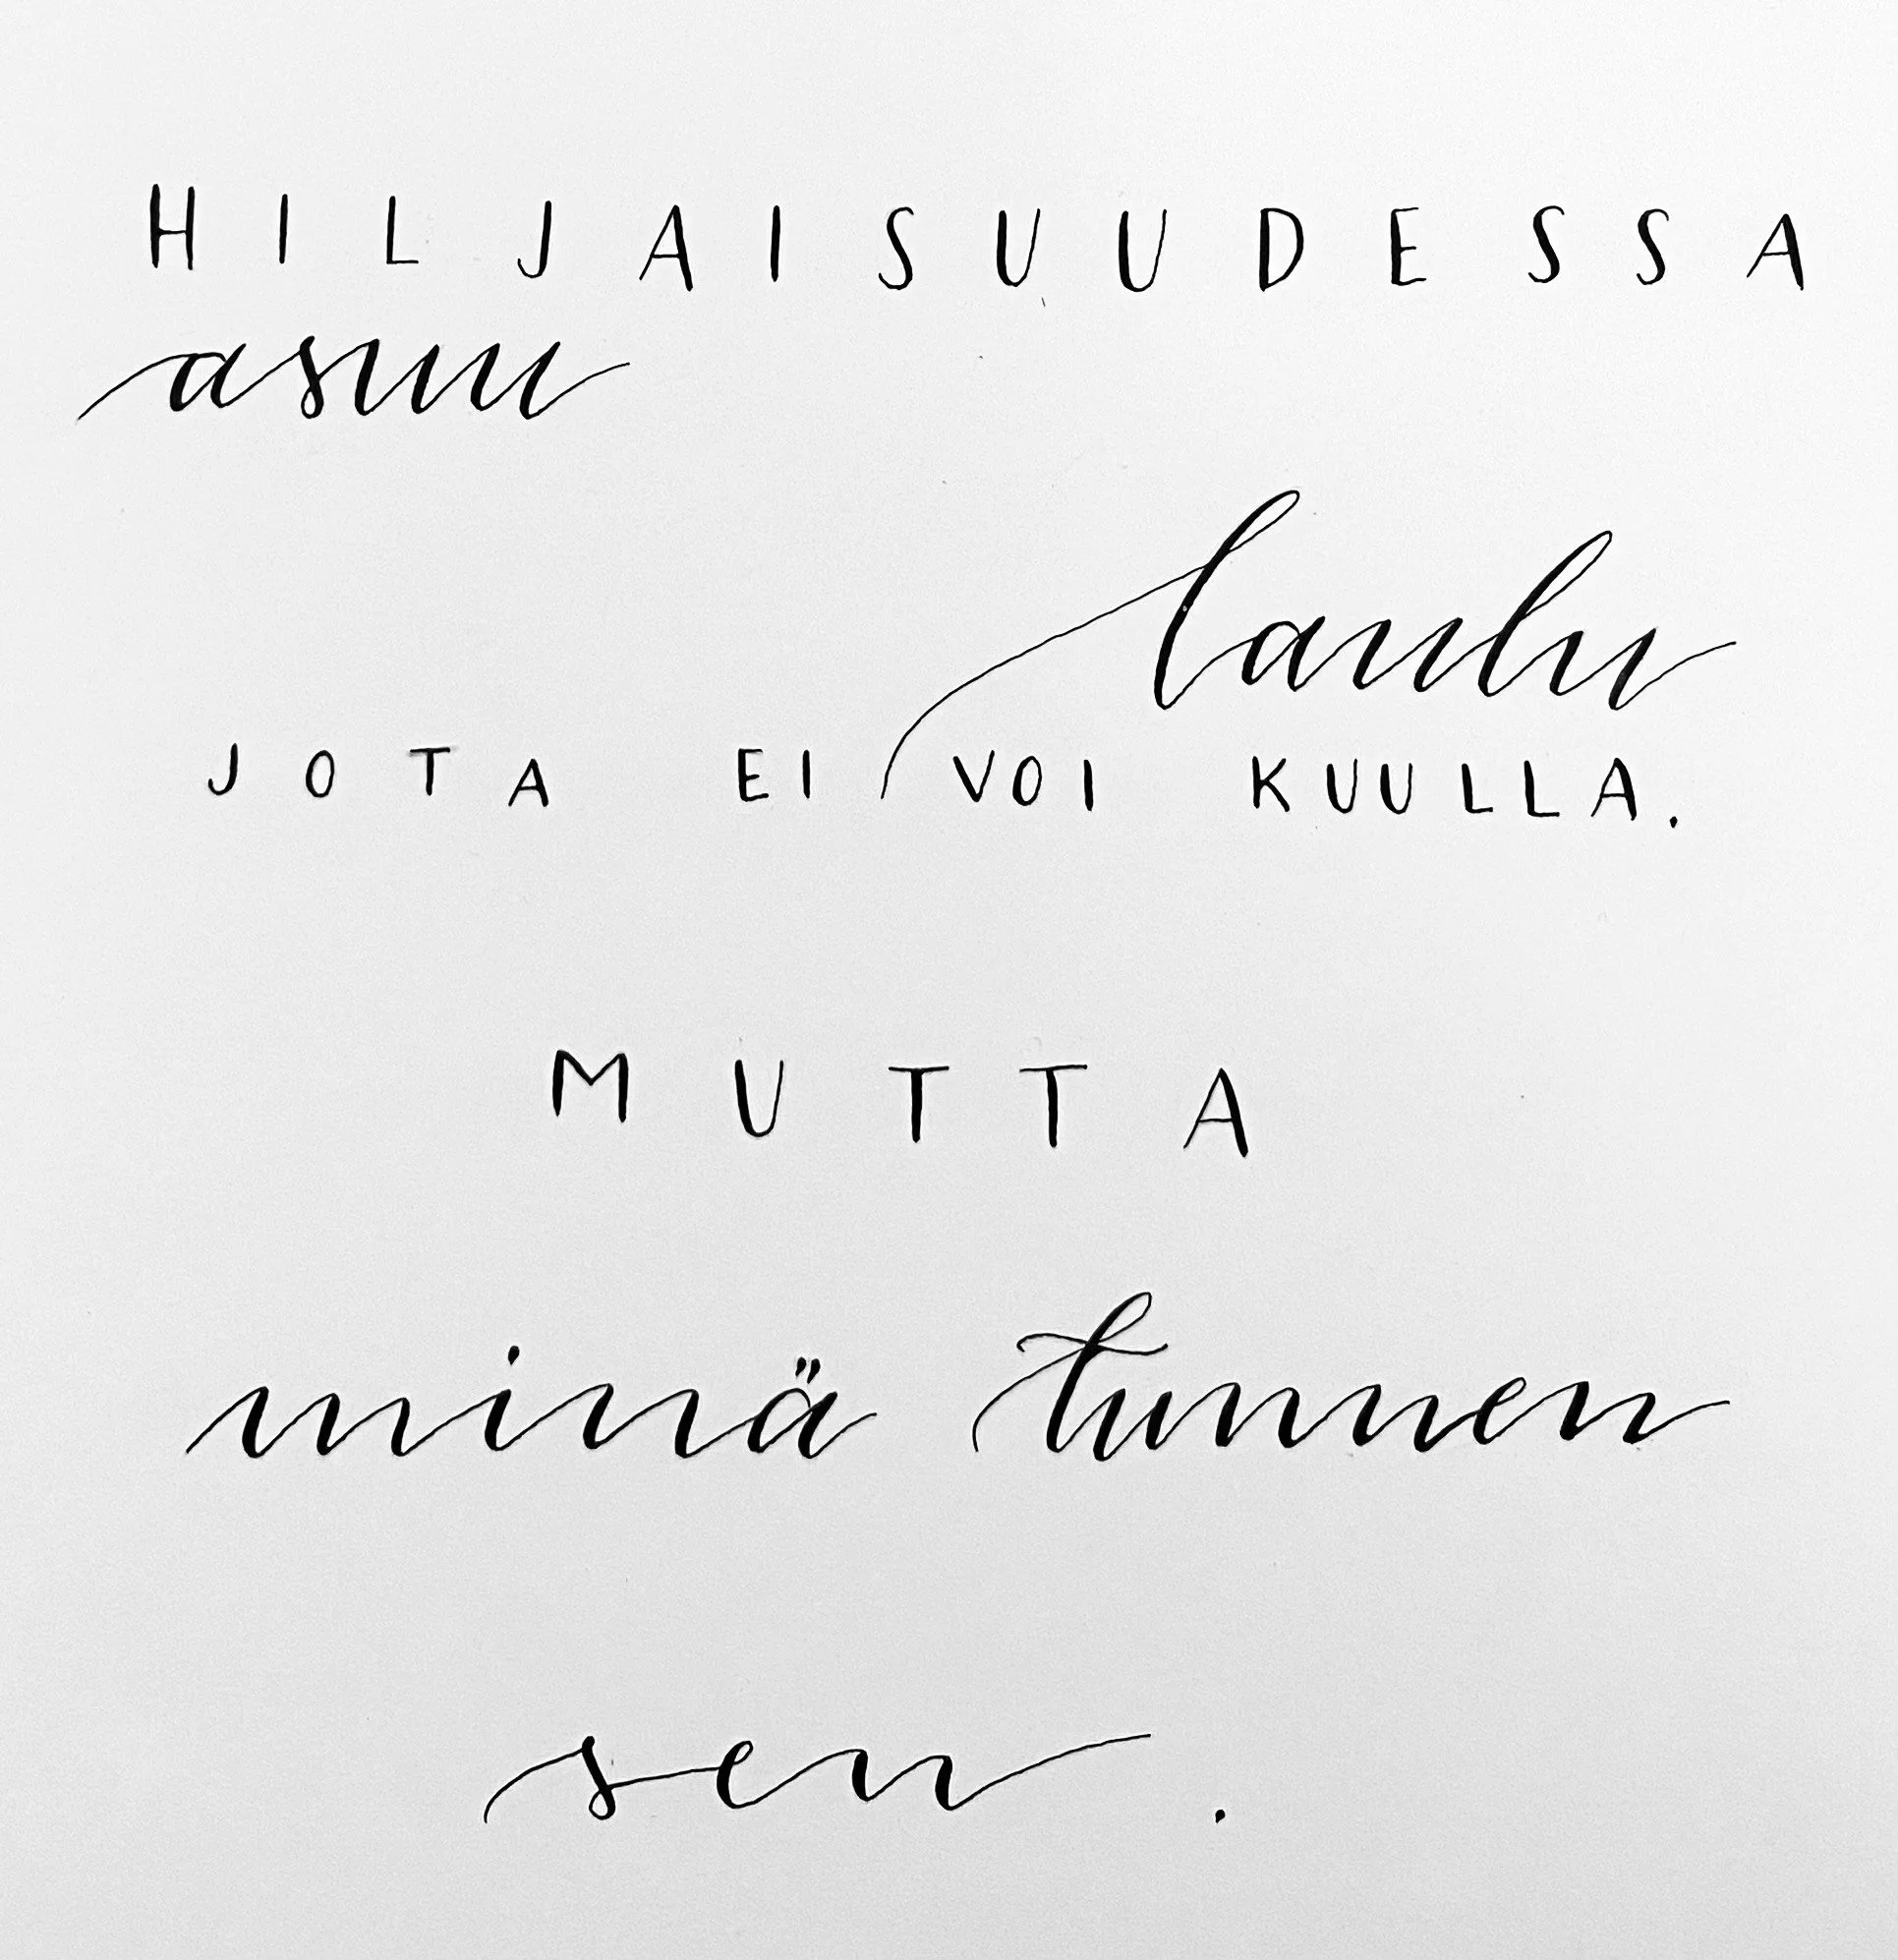 HILJAISUUDESSA
asuu
laulu
JOTA EI VOI KUULLA.
MUTTA
minä tunnen
sen.